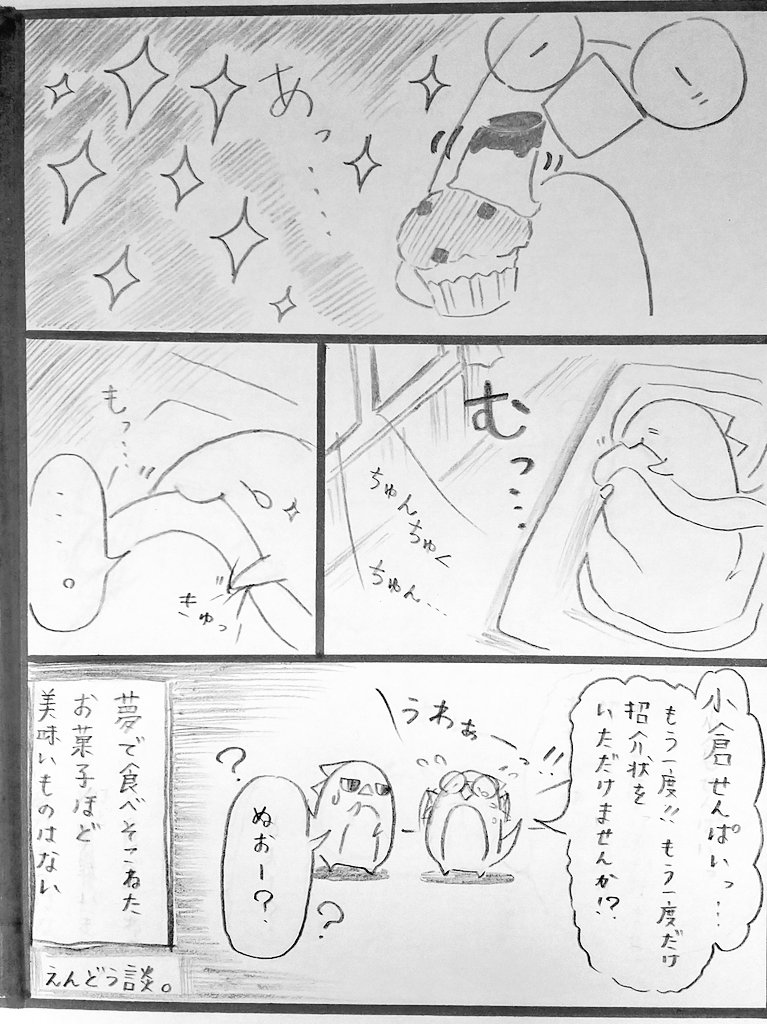 あっ・・・・
むっ・・・
ちゅん
ちゅく
ちゅん・・・
もっ・・・
・・・。
きゅっ
小倉せんぱいっ・・・
もう一度!!もう一度だけ
招介状を
いただけませんか!?
うわぁーっ!!
?
ぬおー?
?
夢で食べそこねた
お菓子ほど
美味いものはない
えんどう談。